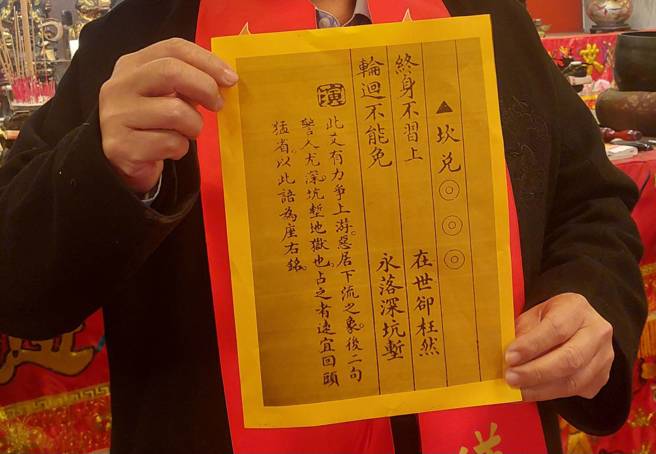 ▲坎兌◎◎◎
終身不習上　在世卻枉然
輪迴不能免　永落深坑塹
此爻有力爭上游。惡居下流之象。後二句
警人尤深。坑塹地獄也。占之者速宜回頭
猛省。以此語為座右銘。